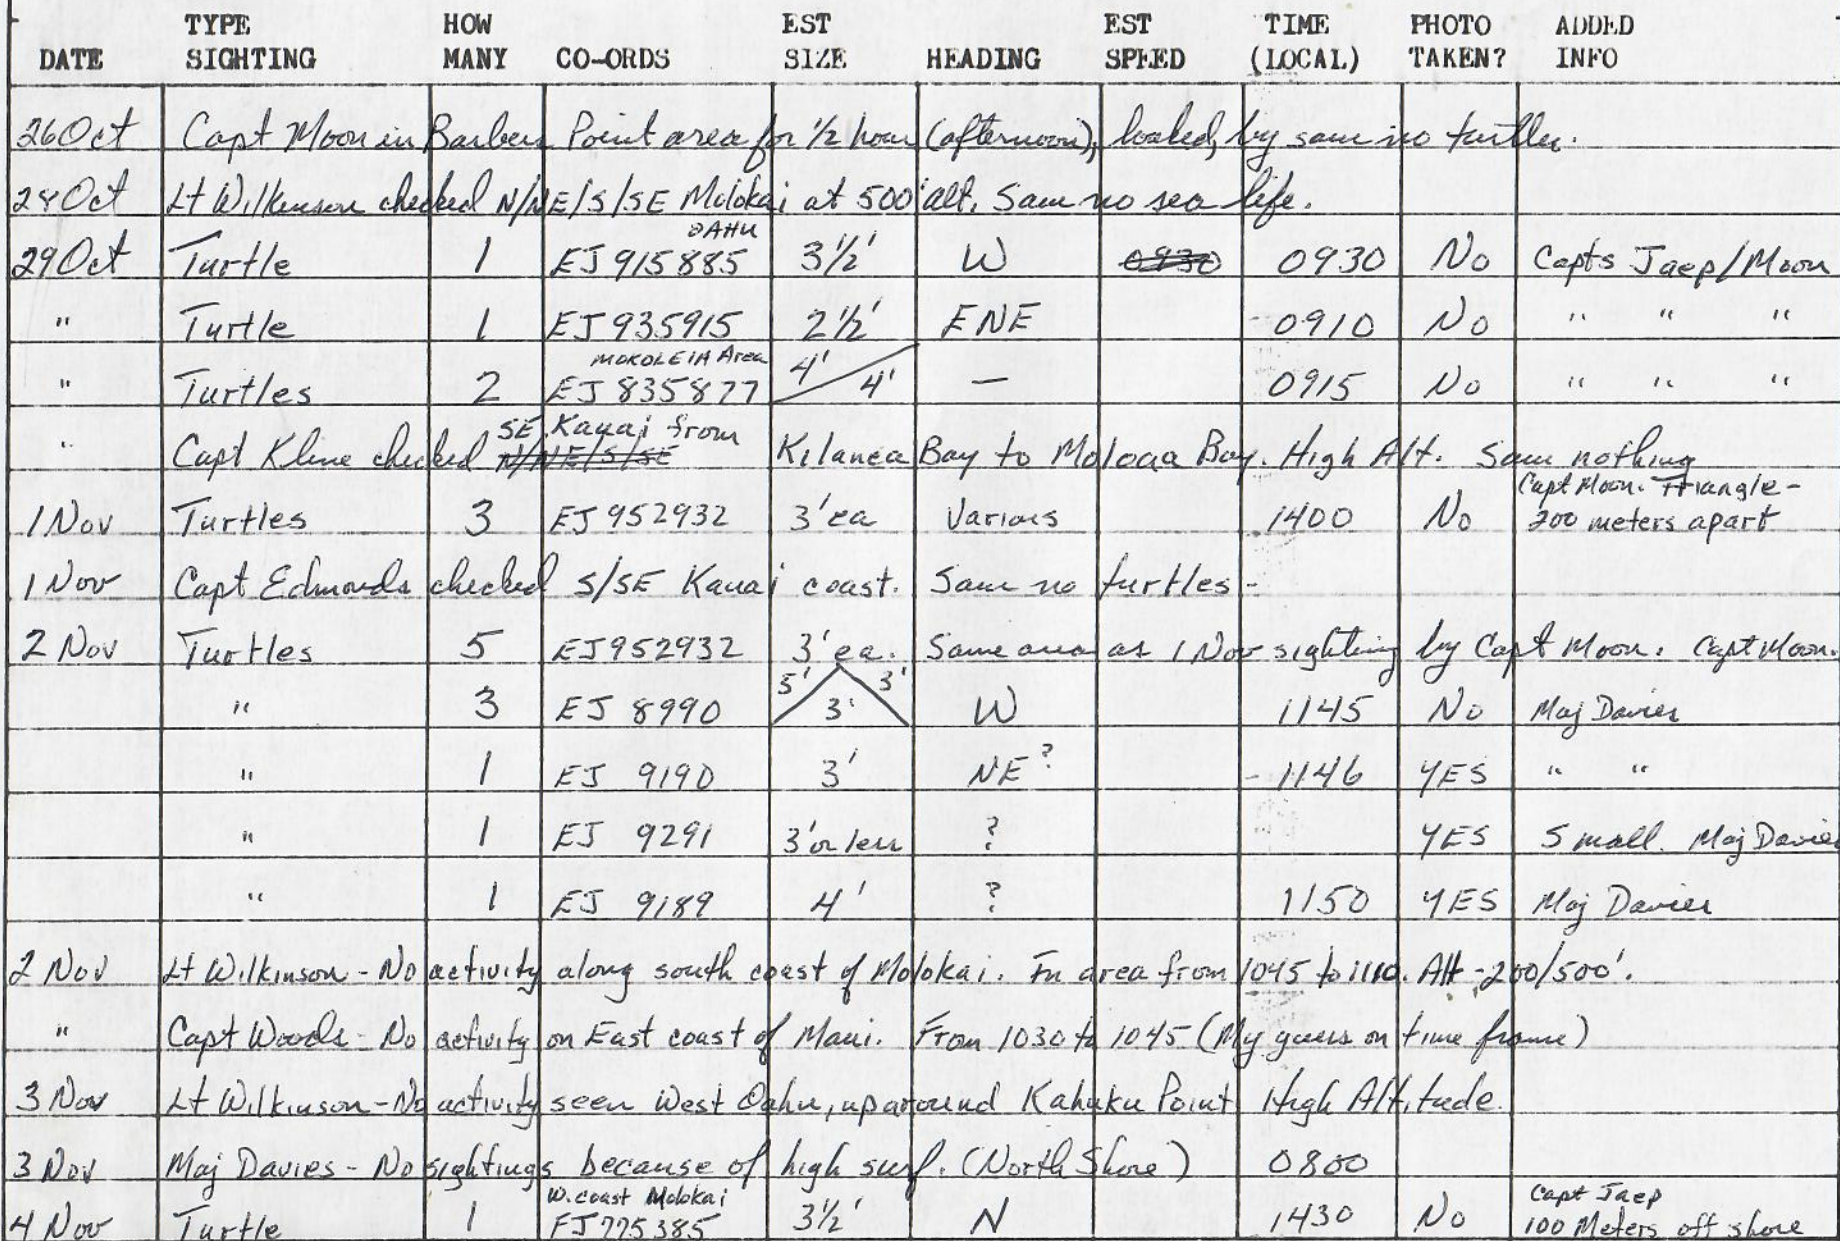 DATE TYPE SIGHTING HOW MANY CO-ORDS EST SIZE HEADING EST SPEED TIME (LOCAL) PHOTO TAKEN? ADDED INFO
26 Oct Capt Moon in Barbers Point area for 1/2 hour (afternoon), looked, by saw no turtles.
28 Oct Lt Wilkinson checked N/NE/S/SE Molokai at 500' alt. Saw no sea life.
29 Oct Turtle 1 OAHU EJ 915885 3 1/2' W 0930 0930 No Capts Jaep/Moon
" Turtle 1 EJ 935915 2 1/2' ENE 0910 No " " "
" Turtles 2 MOKOLEIA Area EJ 835877 4' / 4' — 0915 No " " "
" Capt Kline checked N/NE/S/SE SE Kauai from Kilanea Bay to Moloaa Bay. High Alt. Saw nothing
1 Nov Turtles 3 EJ 952932 3' ea Various 1400 No Capt Moon. Triangle - 200 meters apart
1 Nov Capt Edmonds checked S/SE Kauai coast. Saw no turtles -
2 Nov Turtles 5 EJ 952932 3' ea. Same area as 1 Nov sighting by Capt Moon. Capt Moon.
" 3 EJ 8990 5' 3' 3' W 1145 No Maj Davies
" 1 EJ 9190 3' NE? 1146 YES " "
" 1 EJ 9291 3' or less ? YES Small. Maj Davies
" 1 EJ 9189 4' ? 1150 YES Maj Davies
2 Nov Lt Wilkinson - No activity along south coast of Molokai. In area from 1045 to 1110. Alt - 200/500'.
" Capt Woods - No activity on East coast of Maui. From 1030 to 1045 (My guess on time frame)
3 Nov Lt Wilkinson - No activity seen West Oahu, up around Kahuku Point High Altitude.
3 Nov Maj Davies - No sightings because of high surf. (North Shore) 0800
4 Nov Turtle 1 W. coast Molokai FJ 775385 3 1/2' N 1430 No Capt Jaep 100 Meters off shore